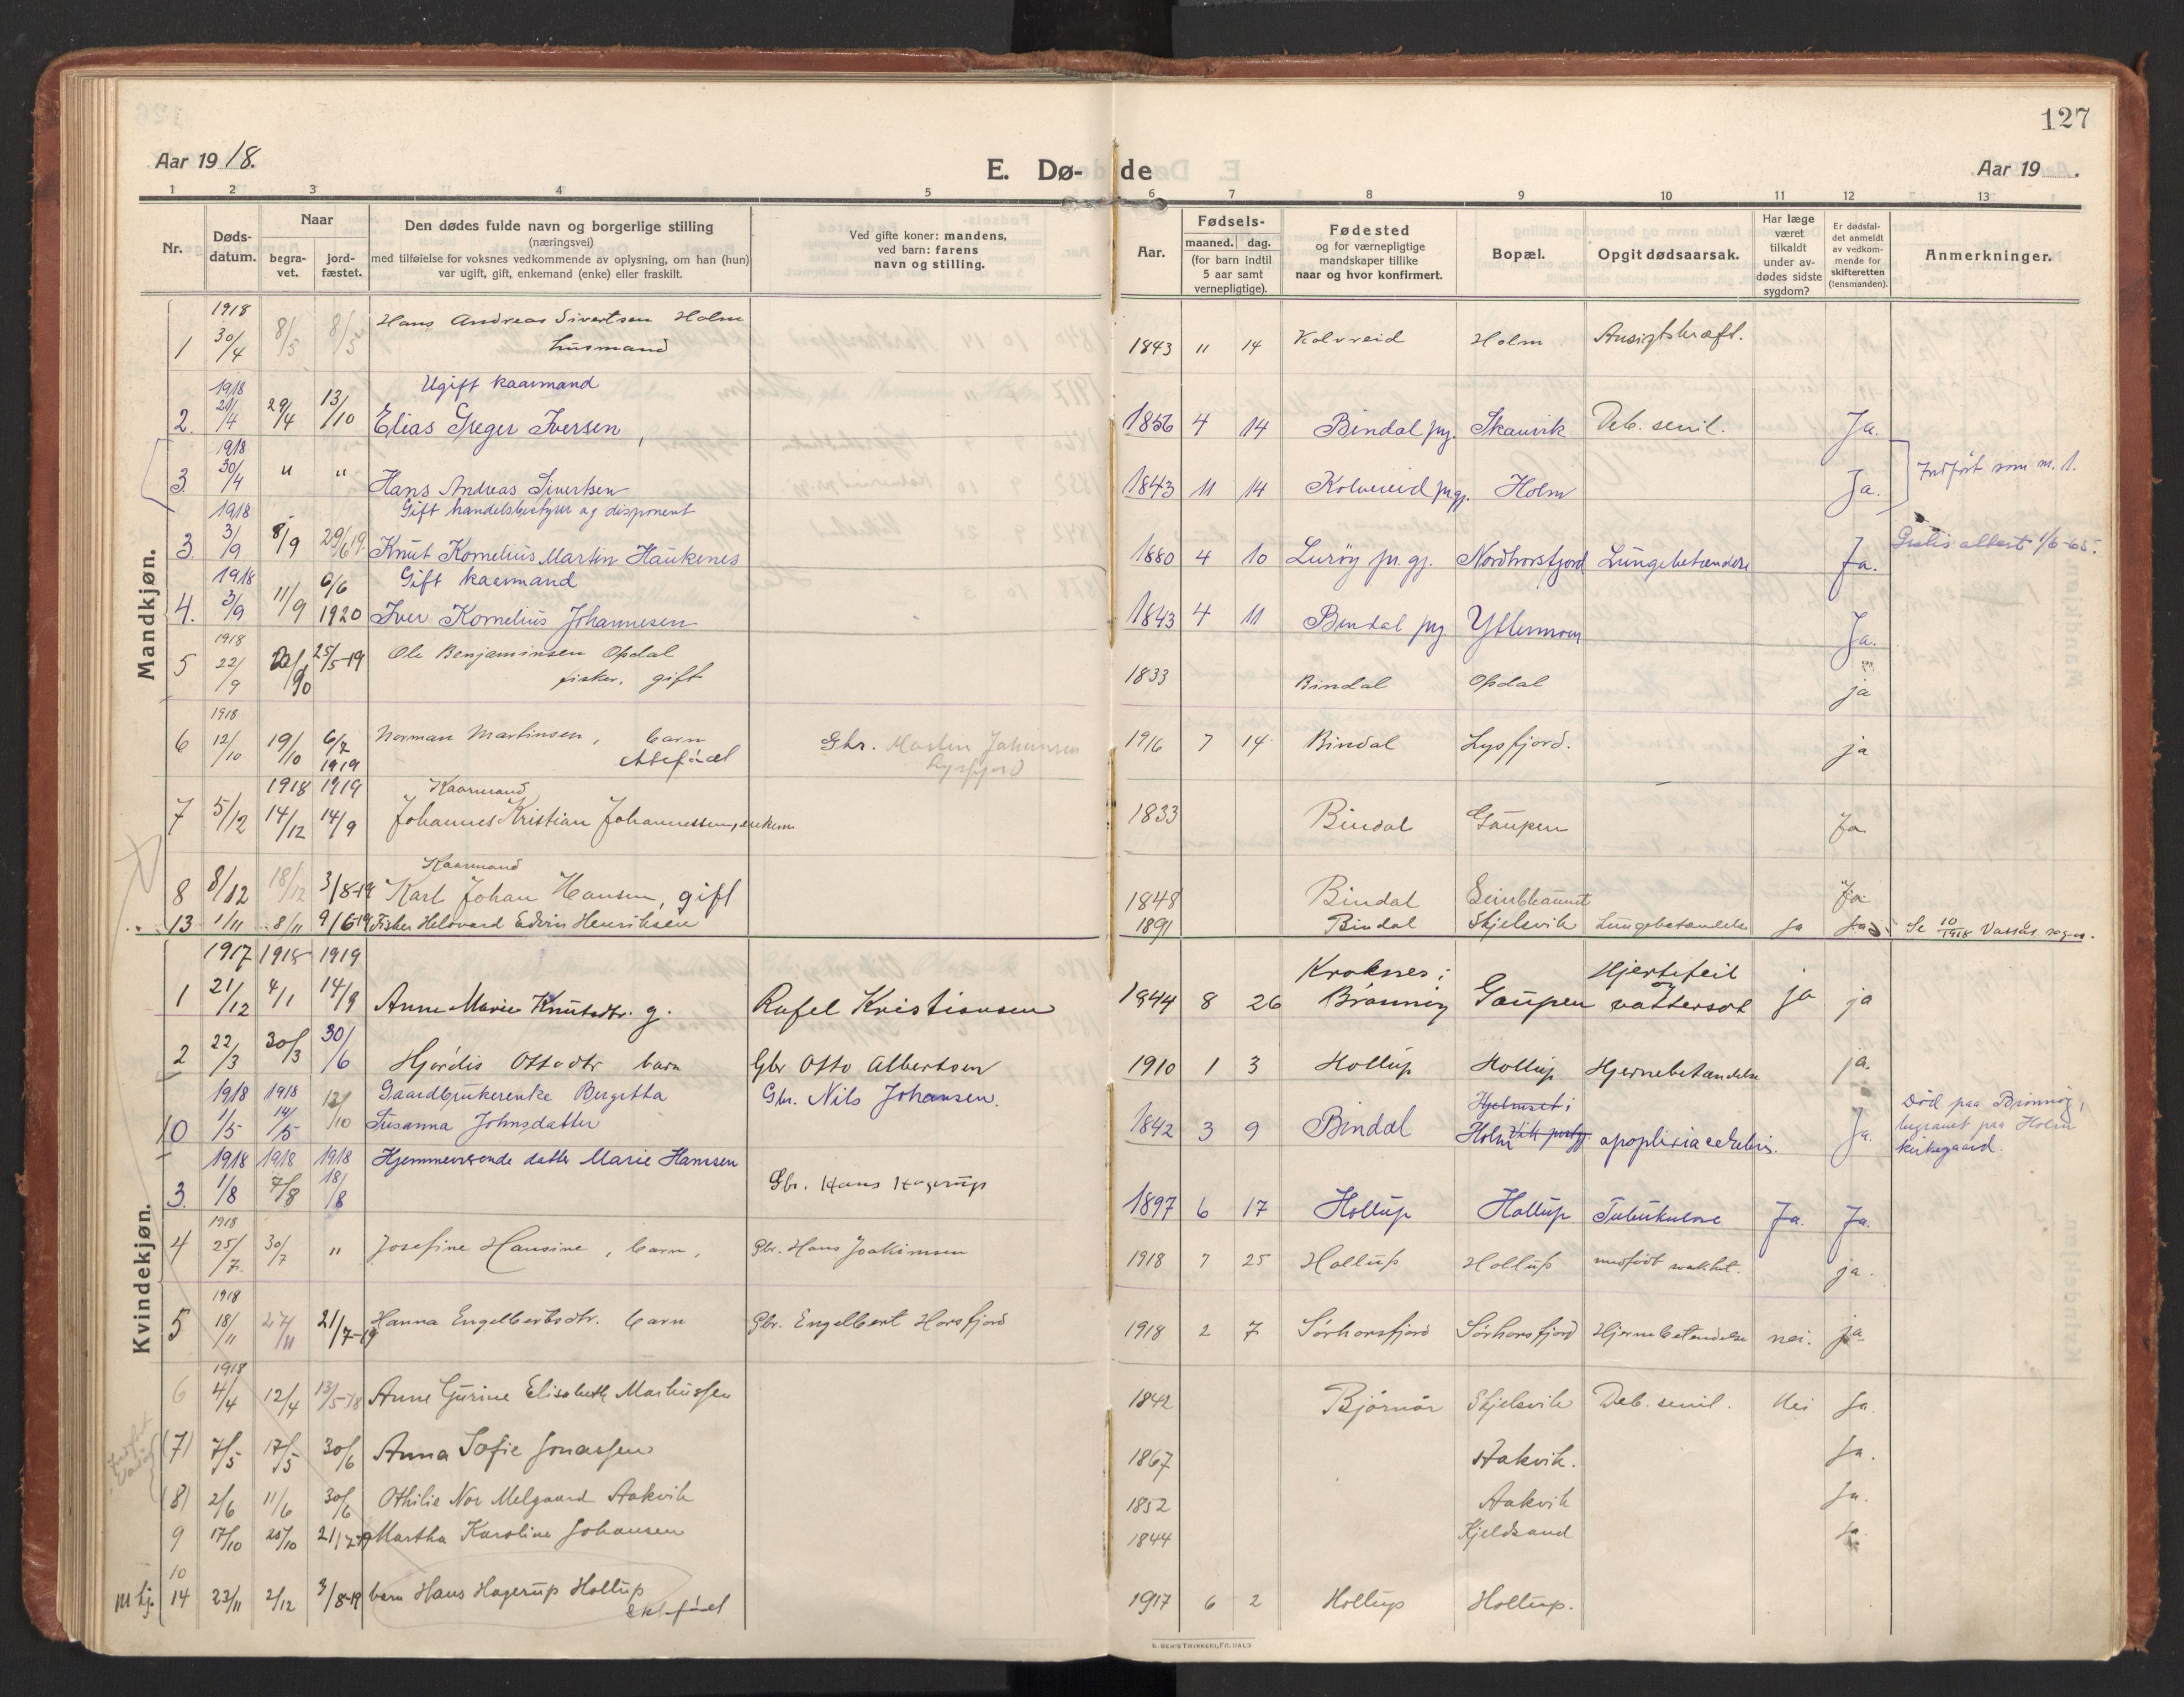 127
Aar 1918.
E. Dø- de
Aar 19 .
1 2 3 4 5 6 7 8 9 10 11 12 13
Nr.
Døds-
datum.
Naar
begra-
vet.
jord-
fæstet.
Den dødes fulde navn og borgerlige stilling
(næringsvei)
med tilføielse for voksnes vedkommende av oplysning, om han (hun)
var ugift, gift, enkemand (enke) eller fraskilt.
Ved gifte koner: mandens,
ved barn: farens
navn og stilling.
Aar.
Fødsels-
maaned. dag.
(for barn indtil
5 aar samt
vernepligtige).
Fødested
og for værnepligtige
mandskaper tillike
naar og hvor konfirmert.
Bopæl.
Opgit dødsaarsak.
Har læge
været
tilkaldt
under av-
dødes sidste
sygdom?
Er dødsfal-
det anmeldt
av vedkom-
mende for
skifteretten
(lensmanden).
Anmerkninger.
Mandkjøn.
1918
1 30/4 8/5 8/5 Hans Andreas Sivertsen Holm
husmand 1843 11 14 Kolvereid Holm Ansigtskræft.
1918 Ugift kaarmand
2. 21/4 29/4 13/10 Elias Greger Iversen, 1856 4 14 Bindal pg. Skauvik Deb. senil. Ja.
1918
3. 30/4 " " Hans Andreas Sivertsen 1843 11 14 Kolvereid pr.gj. Holm Ja. Indført som nr. 1.
1918 Gift handelsbestyrer og disponent
3. 3/9 8/9 29/6 19 Knut Kornelius Martin Haukenes 1880 4 10 Lurøy pr.gj. Nordhorsfjord Lungebetændelse Ja. Gratis attest 1/6-65.
1918 Gift kaarmand
4. 3/9 11/9 6/6 1920 Iver Kornelius Johannesen 1843 4 11 Bindal pg. Yttermoen Ja.
1918
5 22/9 25/5-19 Ole Benjaminsen Opdal
fisker, gift 1833 Bindal Opdal ja
1918
6 12/10 19/10 6/7 1919 Norman Martinsen, barn
Gbr. Martin Johansen
Lysfjord 1916 7 14 Bindal Lysfjord. ja
1918 1919 Kaarmand
7 5/12 14/12 14/9 Johannes Kristian Johannessen, enkem 1833 Bindal Gaupen Ja
Kaarmand
8 8/12 18/12 3/8-19 Karl Johan Hansen, gift 1848 Bindal Ja
13 1/11 8/11 9/6 19 Fisker Helovard Edvin Henriksen 1891 Bindal Skjelsvik Lungebetændelse Ja Ja Se 10/1918 Vassås sogn.
Kvindekjøn.
1917 1918 1919
1 21/12 4/1 14/9 Anne Marie Knutsdtr. g. Rafel Kristiansen 1844 8 26 Kroknes i
Brønnøy Gaupen Hjertefeil
og vattersot ja ja
2 22/3 30/3 30/6 Hjørdis Ottosdtr barn Gbr Otto Albertsen 1910 1 3 Hollup Hollup Hjernebetændelse ja.
1918 1918 Gaardbrukerenke Bergitta Gbr. Nils Johansen.
10 1/5 14/5 12/10 Susanna Johnsdatter 1842 3 9 Bindal Holm apoplexia cerebri. Ja. Død paa Brønnøy,
begravet paa Holm
kirkegaard.
1918 1918 1918 Hjemmeværende datter Marie Hanssen
3. 1/8 7/8 18/8 Gbr. Hans Hagerup 1897 6 17 Hollup Hollup Tuberkulose Ja. Ja.
1918
4 25/7 30/7 " Josefine Hansine, barn, Gbr. Hans Joakimsen 1918 7 25 Hollup Hollup medfødt svakhet. ja.
1918
5 18/11 27/11 21/7-19 Hanna Engelbertsdtr. barn Gbr. Engelbert Horsfjord 1918 2 7 Sørhorsfjord Sørhorsfjord Hjernebetændelse nei. ja.
1918
6 4/4 12/4 13/5-18 Anne Gurine Elisabeth Markussen 1842 Bjørnør Skjelsvik Deb. senil. Nei Ja.
(7) 7/5 17/5 30/6 Anna Sofie Jonassen 1867 Aakvik. Ja.
(8) 2/6 11/6 30/6 Othilie Nor Melgaard Aakvik 1852 Aakvik Ja.
9 17/10 25/10 21/7 19 Martha Karoline Johansen 1844 Kjeldsand Ja.
10
M kj. 14 23/11 2/12 3/8-19 barn Hans Hagerup Hollup
1917 6 2 Hollup Hollup.